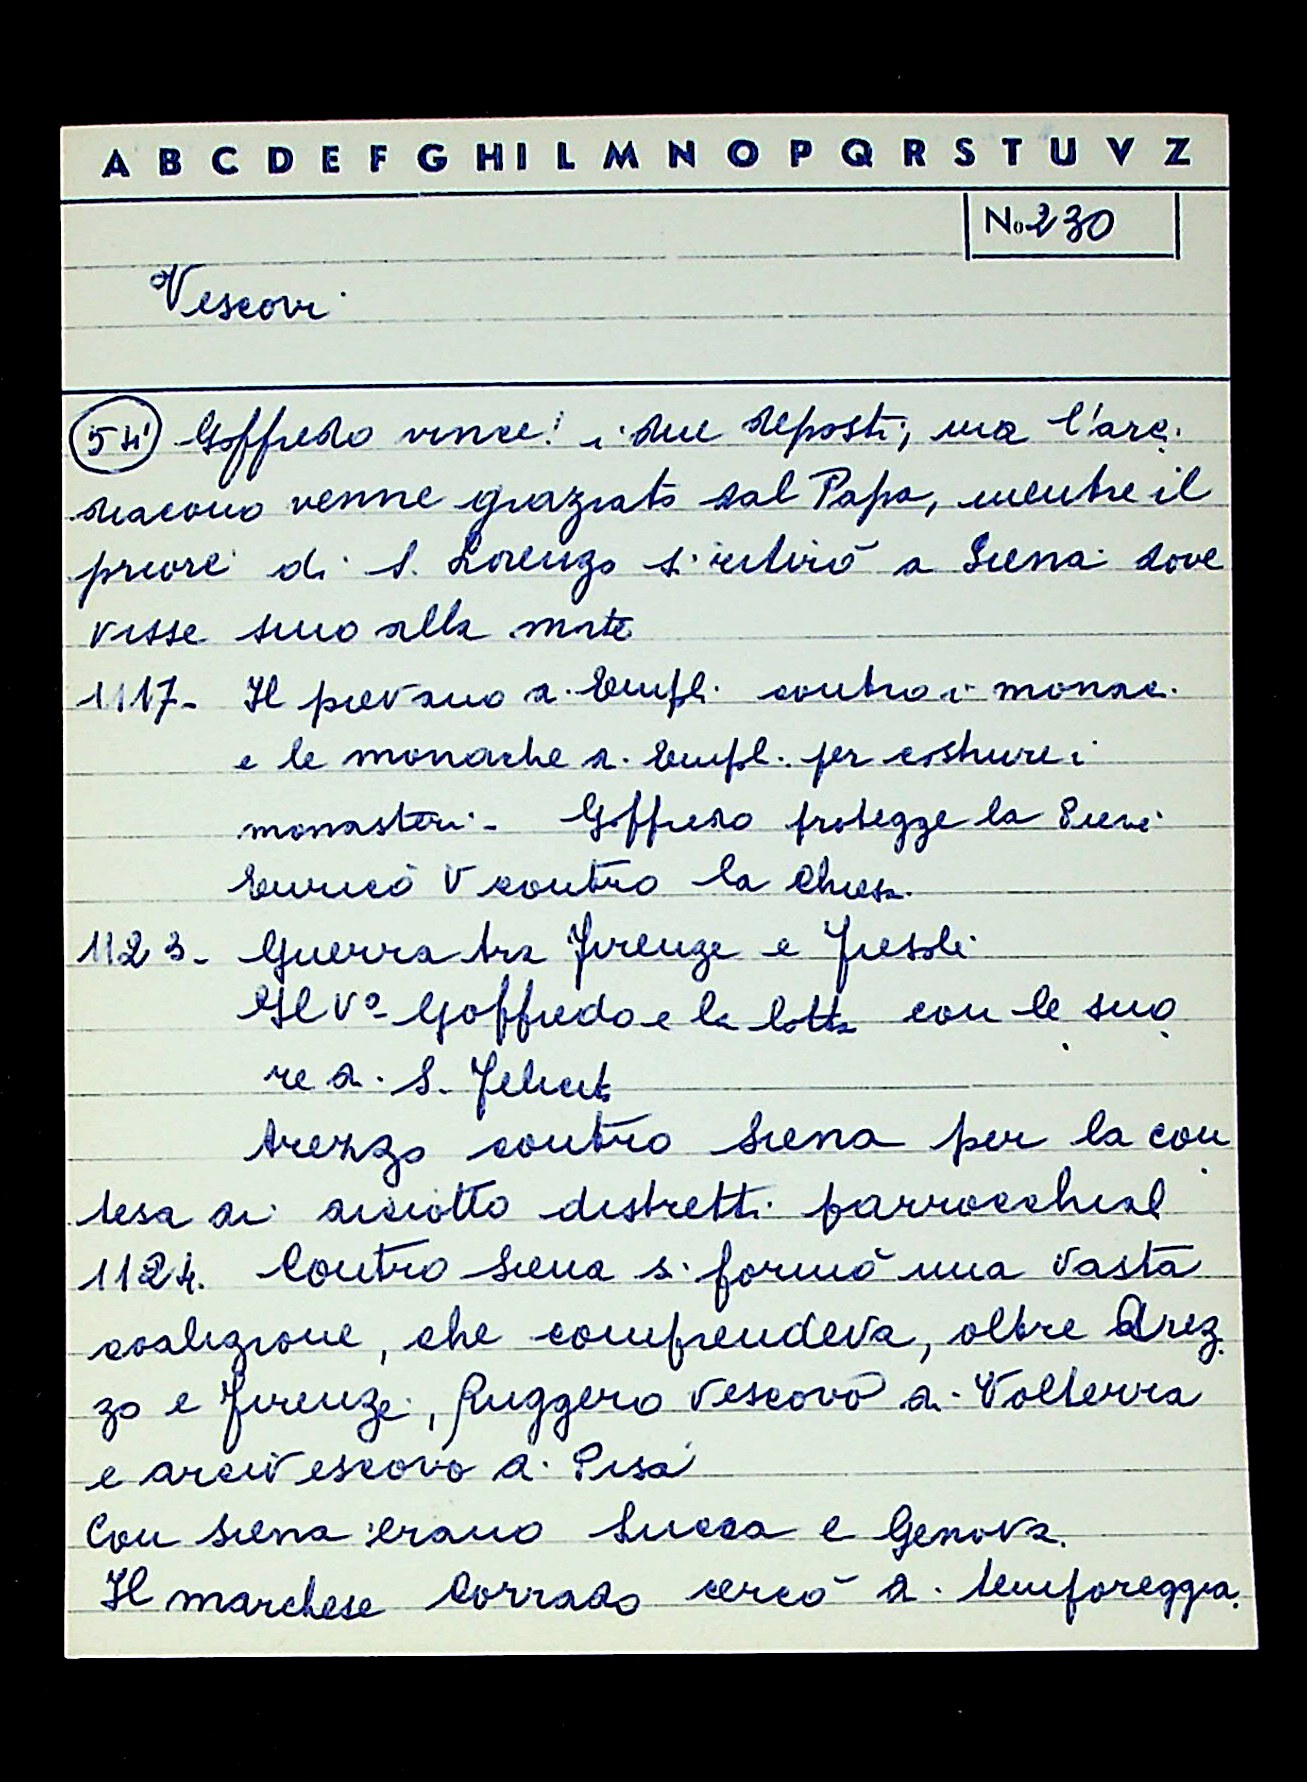 A B C D E F G H I L M N O P Q R S T U V Z
No 230
Vescovi
54 Goffredo vince! i due deposti; ma l'arc.
diacono venne graziato dal Papa, mentre il
priore di S. Lorenzo si ritirò a Siena dove
visse sino alla morte
1117- Il pievano di Empl. contro i monac.
e le monache di Empl. per costruire i
monasteri - Goffredo protegge la Pieve
Enrico V contro la Chiesa.
1123- Guerra tra Firenze e Fiesole
Il Vº Goffredo e la lotta con le suo
re di S. Felicita
Arezzo contro Siena per la con
tesa di diciotto distretti parrocchial
1124. Contro Siena si formò una vasta
coalizione, che comprendeva, oltre Arez.
zo e Firenze, Ruggero vescovo di Volterra
e arcivescovo di Pisa
Con Siena erano Lucca e Genova.
Il marchese Corrado cercò di temporeggia.